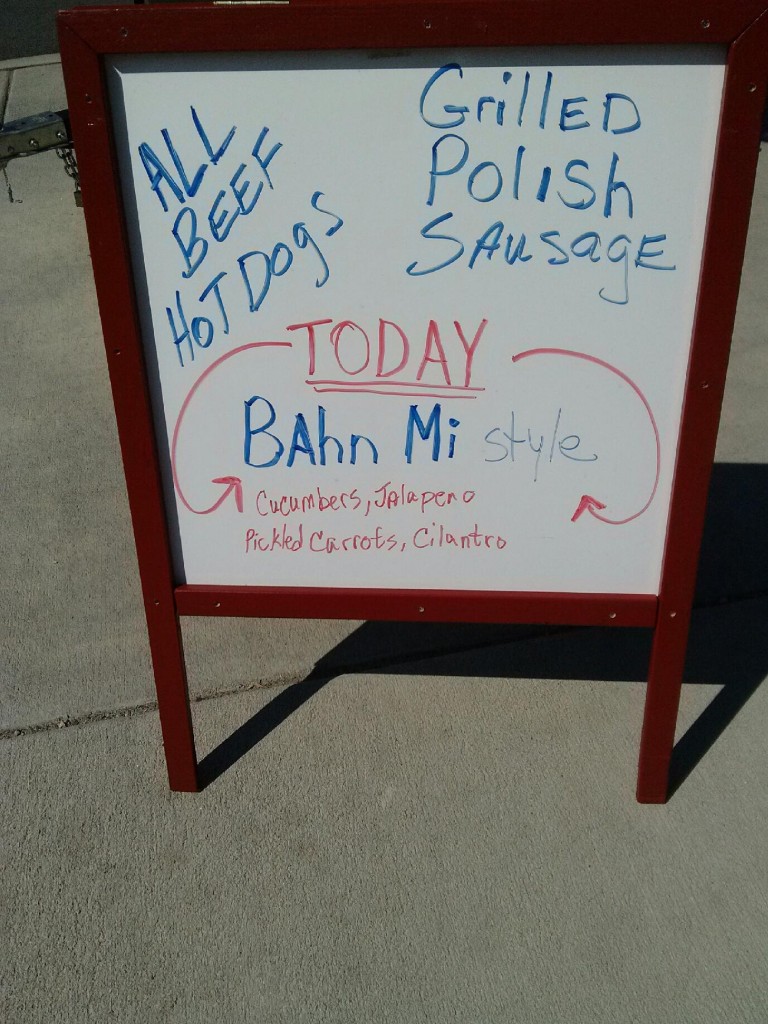 ALL
BEEF
HOT DOgS
GrillED
Polish
SAusagE
TODAY
BAhn Mi style
Cucumbers, JAlapeno
Pickled Carrots, Cilantro